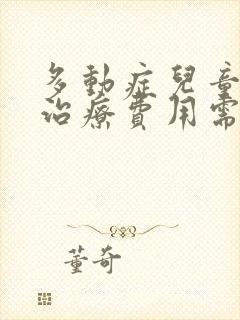 多動症兒童
治療費用需
董奇